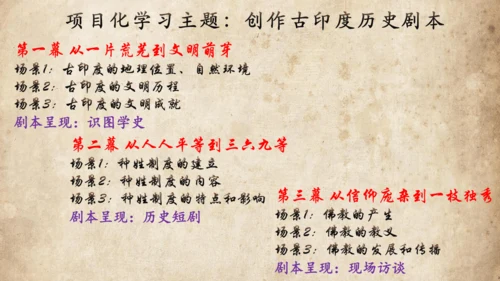 项目化学习主题：创作古印度历史剧本
第一幕 从一片荒芜到文明萌芽
场景1：古印度的地理位置、自然环境
场景2：古印度的文明历程
场景3：古印度的文明成就
剧本呈现：识图学史
第二幕 从人人平等到三六九等
场景1：种姓制度的建立
场景2：种姓制度的内容
场景3：种姓制度的特点和影响
剧本呈现：历史短剧
第三幕 从信仰庞杂到一枝独秀
场景1：佛教的产生
场景2：佛教的教义
场景3：佛教的发展和传播
剧本呈现：现场访谈